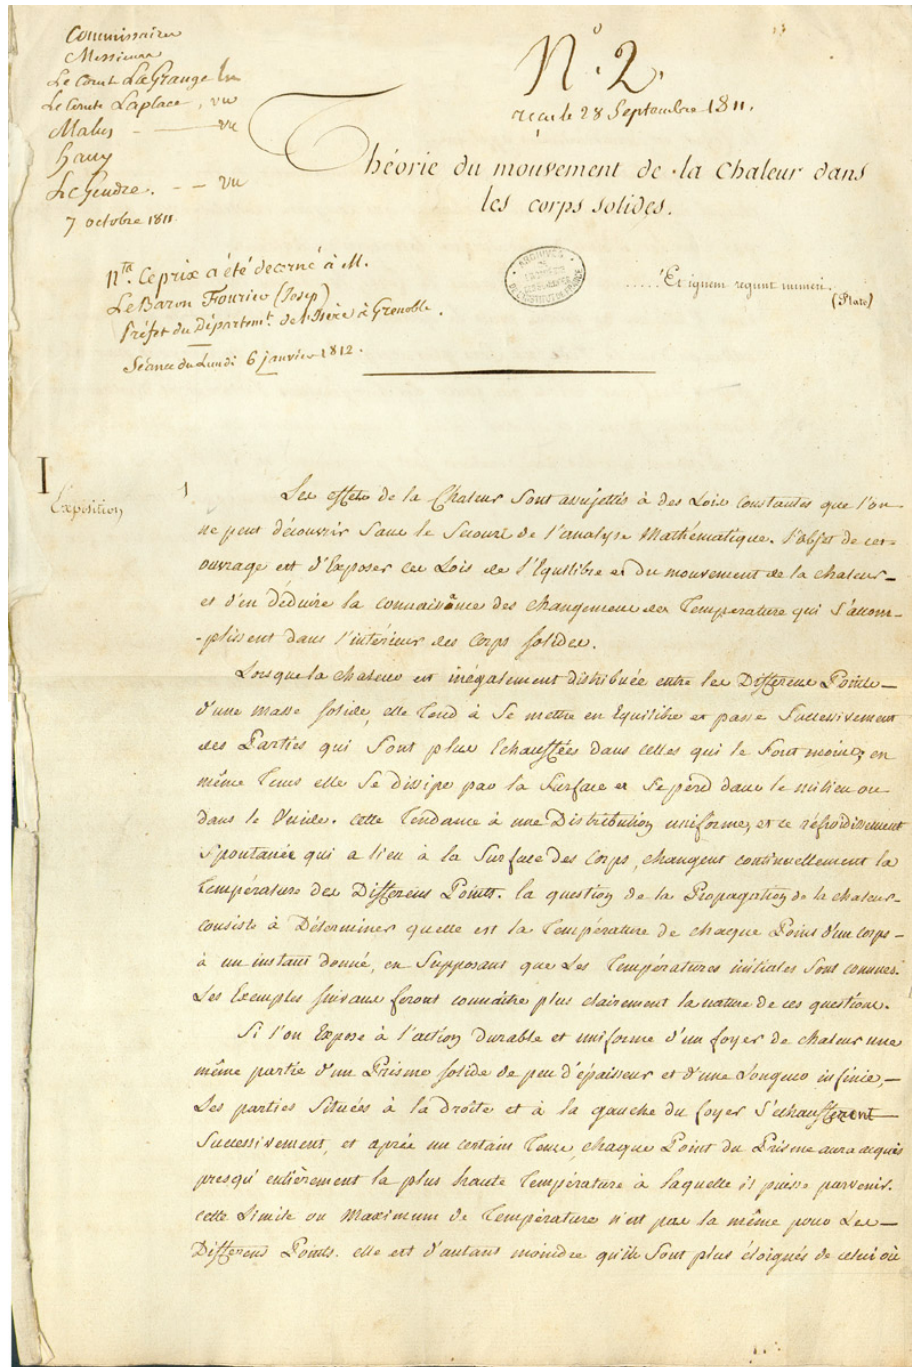 Commissaires
Messieurs
Le Comte LaGrange lu
Le Comte Laplace, vu
Malus - vu
hauy
LeGendre. - - vu
7 octobre 1811
N° 2.
reçu le 28 Septembre 1811.
Théorie du mouvement de la Chaleur dans
les corps solides.
Nta. Ce prix a été décerné à M.
Le Baron Fourier (Josep)
Préfet du Départemt. de l'Isère à Grenoble.
Séance du Lundi 6 janvier 1812.
ARCHIVES
.....Et ignem regunt numeri.
(Plato)
I
Exposition
1
Les effets de la Chaleur Sont assujettis à des Lois constantes que l'on
ne peut découvrir Sans le Secours de l'analyse Mathématique. l'objet de cet
ouvrage est d'Exposer ces Lois de l'Equilibre et du mouvement de la chaleur
et d'en déduire la connaissance des changemens de Température qui s'accom-
-plissent dans l'intérieur des Corps solides.
Lorsque la chaleur est inégalement distribuée entre les Différens Points
d'une masse solide, elle tend à Se mettre en Equilibre et passe Successivement
des Parties qui Sont plus Echauffées dans celles qui le Sont moins; en
même tems elle Se dissipe par la Surface et Se perd dans le milieu ou
dans le Vuide. cette Tendance à une Distribution uniforme, et ce refroidissement
Spontanée qui a lieu à la Surface des Corps, changent continuellement la
température des Différens Points. la question de la Propagation de la chaleur
consiste à Déterminer quelle est la Température de chaque Point d'un corps
à un instant donné, en Supposant que Les Températures initiales Sont connues.
Les Exemples suivans feront connaître plus clairement la nature de ces questions.
Si l'on Expose à l'action Durable et uniforme d'un foyer de chaleur une
même partie d'un Prisme solide de peu d'épaisseur et d'une Longueur infinie,
Les parties Situées à la droite et à la gauche du foyer S'échauffent
Successivement, et après un certain Tems, chaque Point du Prisme aura acquis
presqu' entièrement la plus haute Température à laquelle il puisse parvenir.
cette Limite ou Maximum de Température n'est pas la même pour Les
Différens Points. elle est d'autant moindre qu'ils Sont plus éloignés de celui où